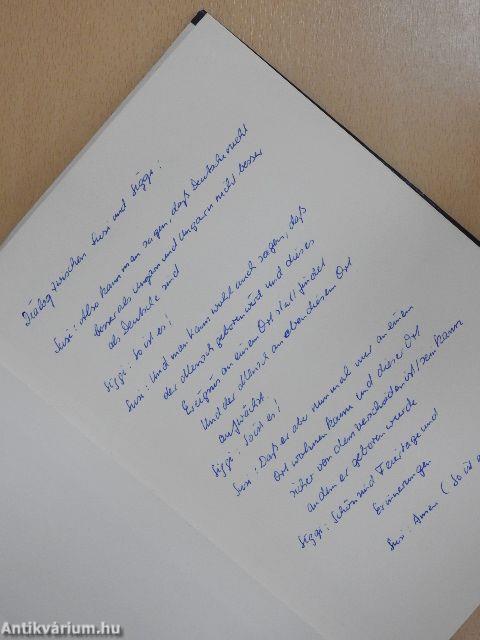 Dialog zwischen Susi und Siggi:
Susi: Also kann man sagen, daß Deutsche nicht
besser als Ungarn und Ungarn nicht besser
als Deutsche sind
Siggi: So ist es!
Susi: Und man kann wohl auch sagen, daß
der Mensch geboren wird und dieses
Ereignis an einem Ort statt findet
Und der Mensch an eben diesem Ort
aufwächst.
Siggi: So ist es!
Susi: Daß er aber nun mal nur an einem
Ort wohnen kann und dieser Ort
sicher von dem verschieden ist/sein kann
an dem er geboren wurde
Siggi: Schön sind Feiertage und
Erinnerungen
Susi: Amen (So ist
Antikvárium.hu